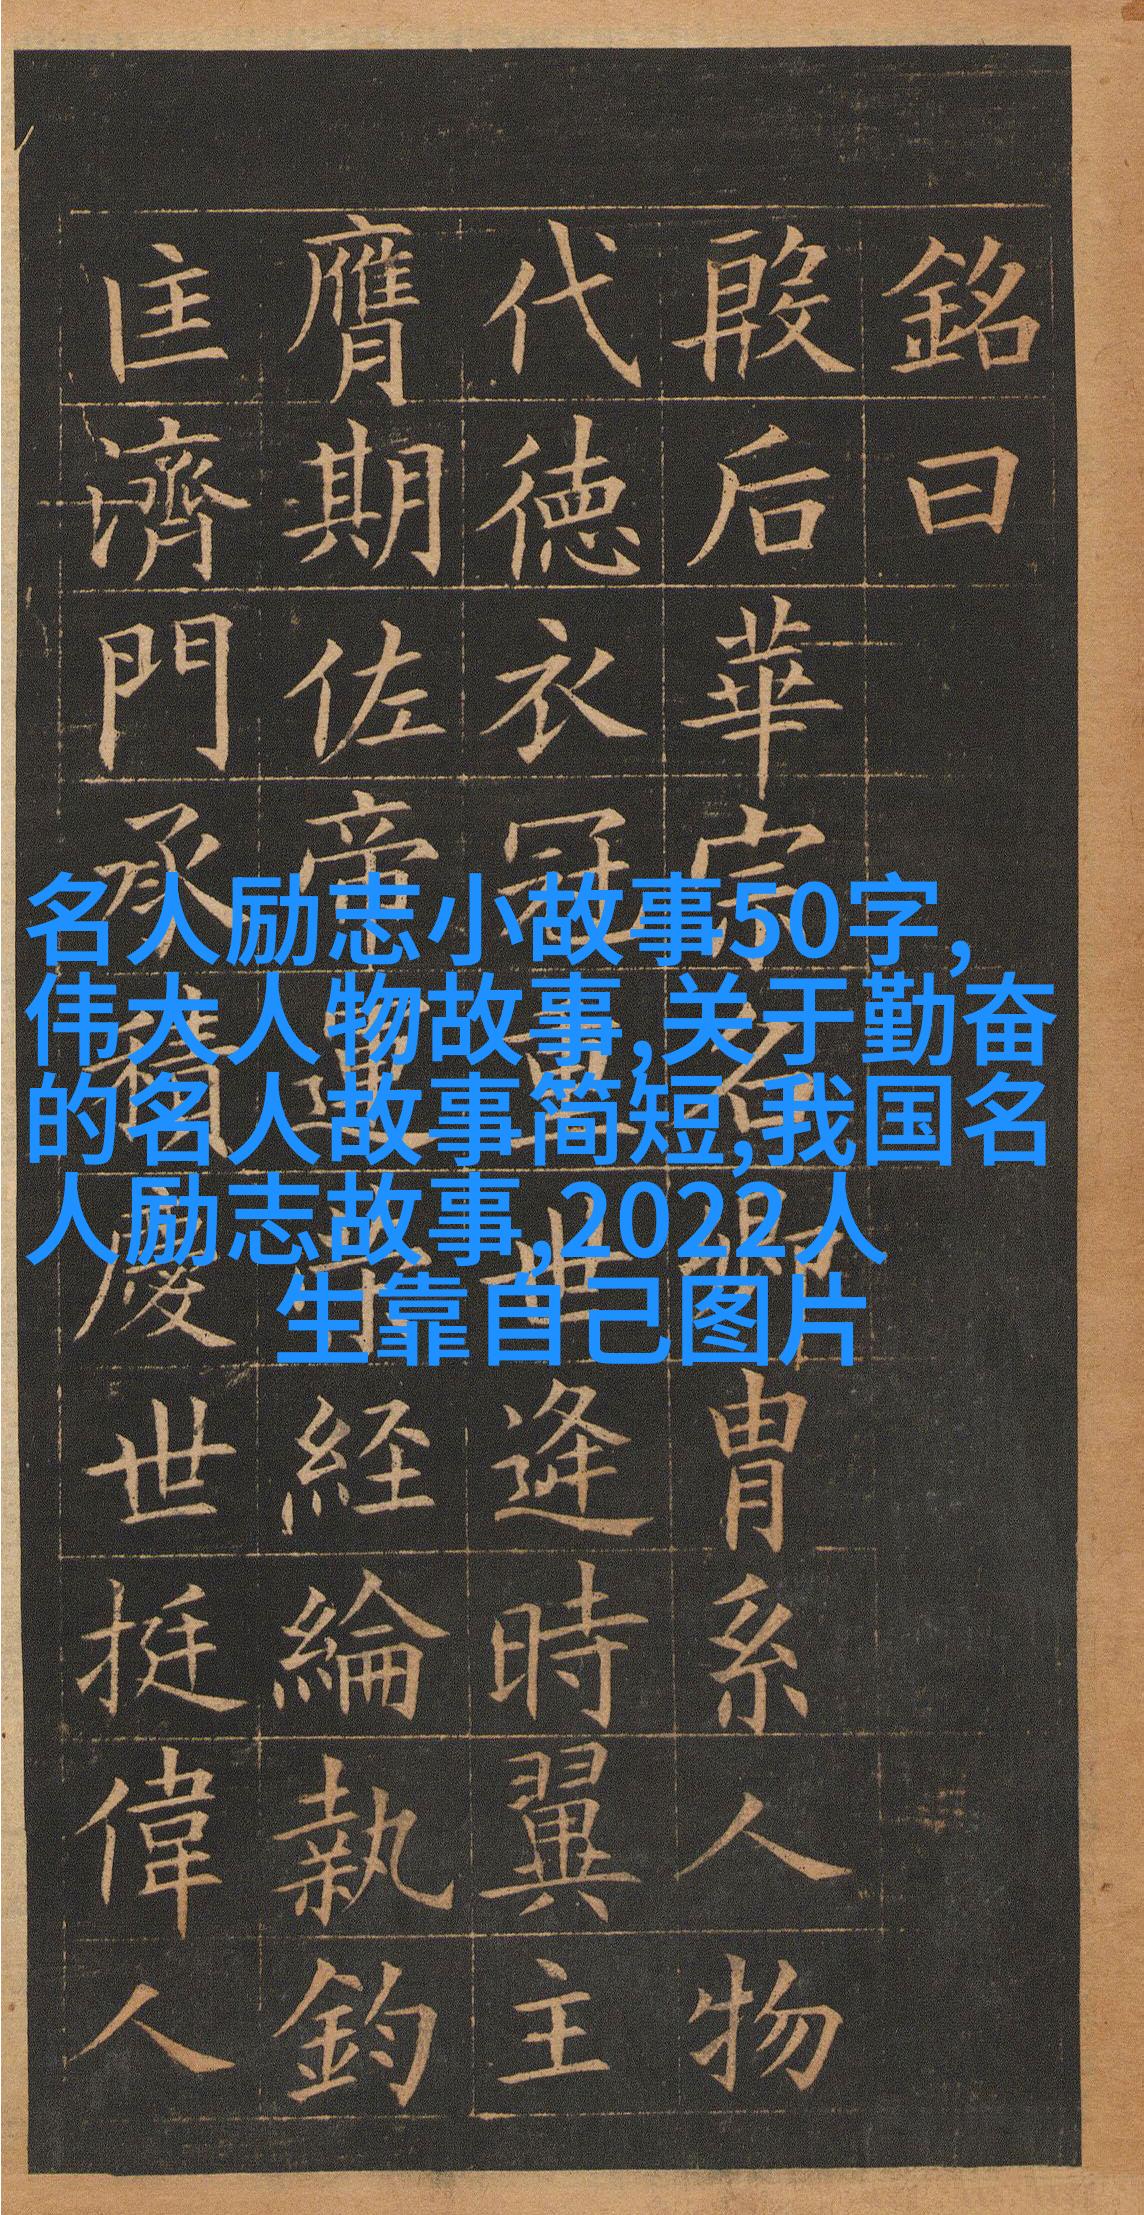 銘曰
殷后華宗名卿冑系人物
代德衣冠重世逢時翼主
膺期佐帝運策經綸執鈞
匡濟門承積慶世挺偉人
名人励志小故事50字,
伟大人物故事,关于勤奋
的名人故事简短,我国名
人励志故事,2022人
生靠自己图片